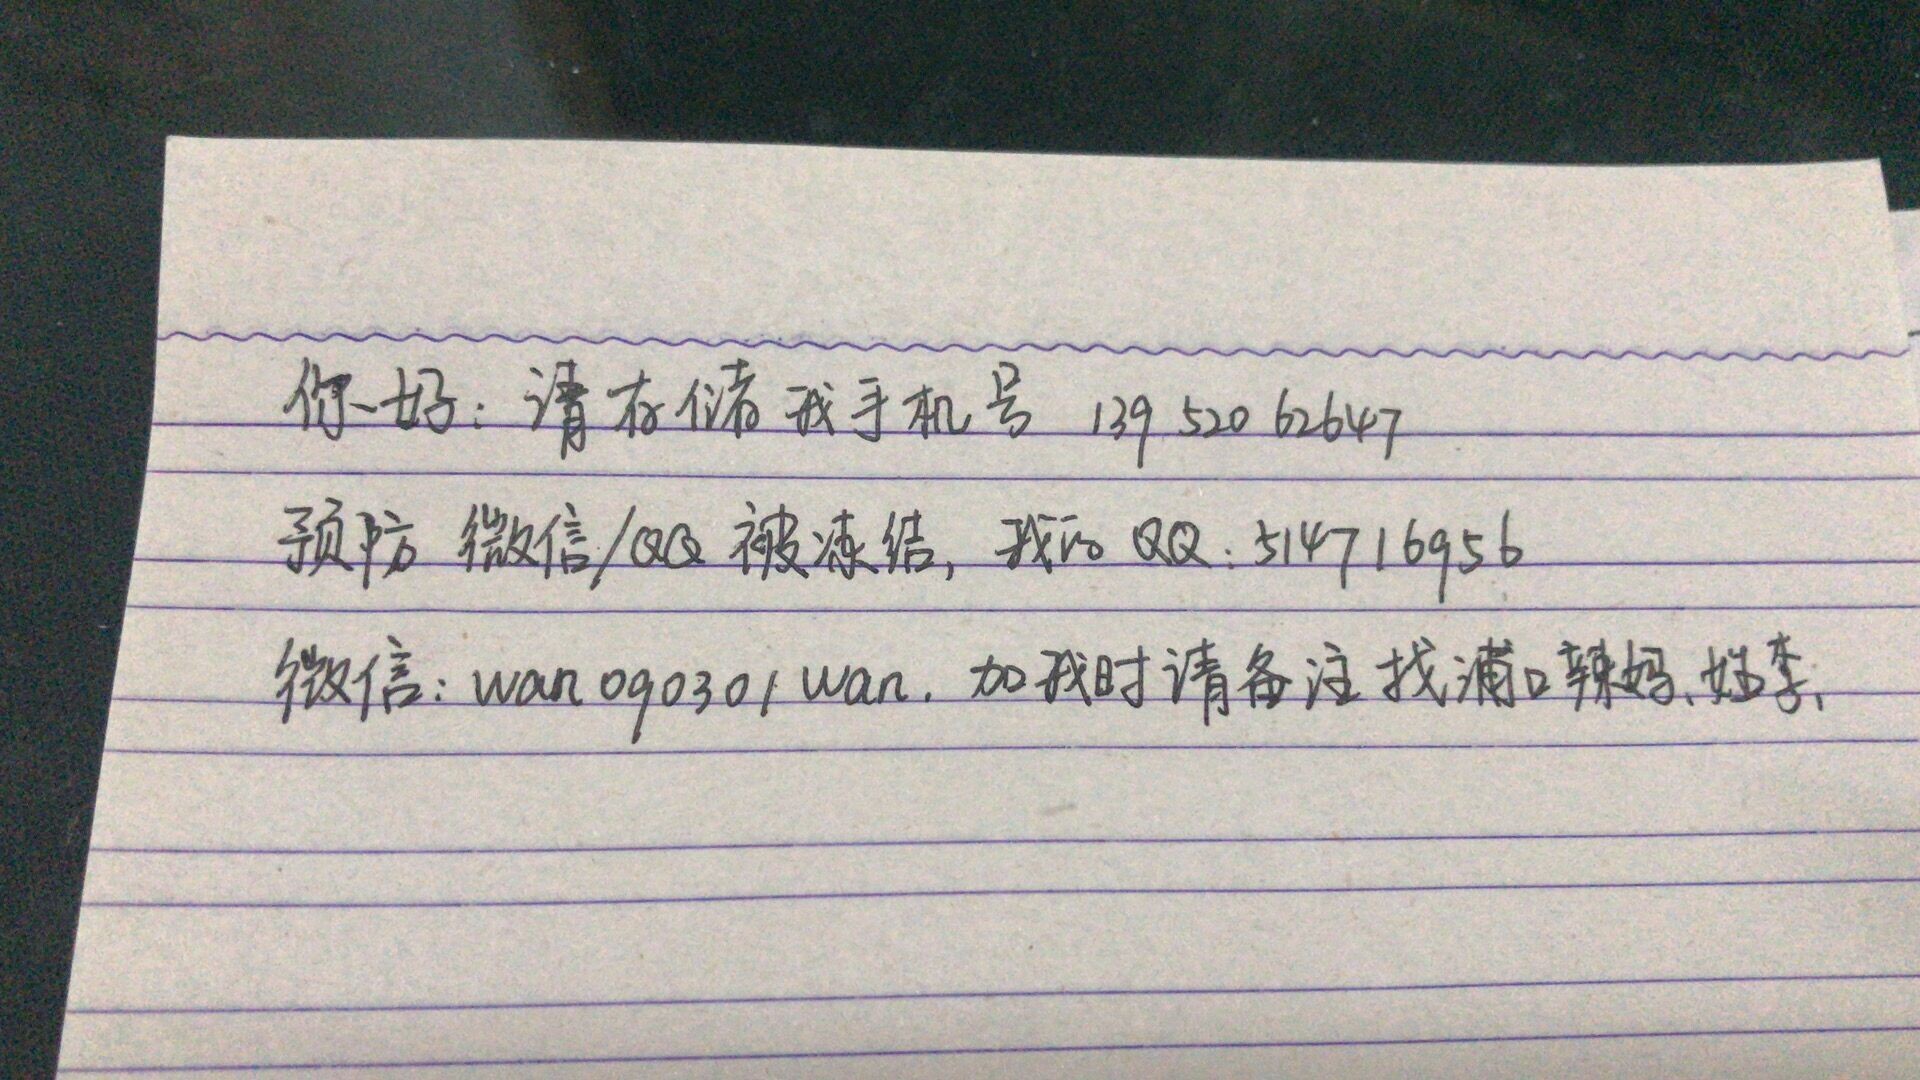 你好：请存储我手机号 139 520 62647
预防 微信/QQ 被冻结，我的 QQ：514716956
微信：wan090301wan. 加我时请备注找浦口辣妈、姓李、